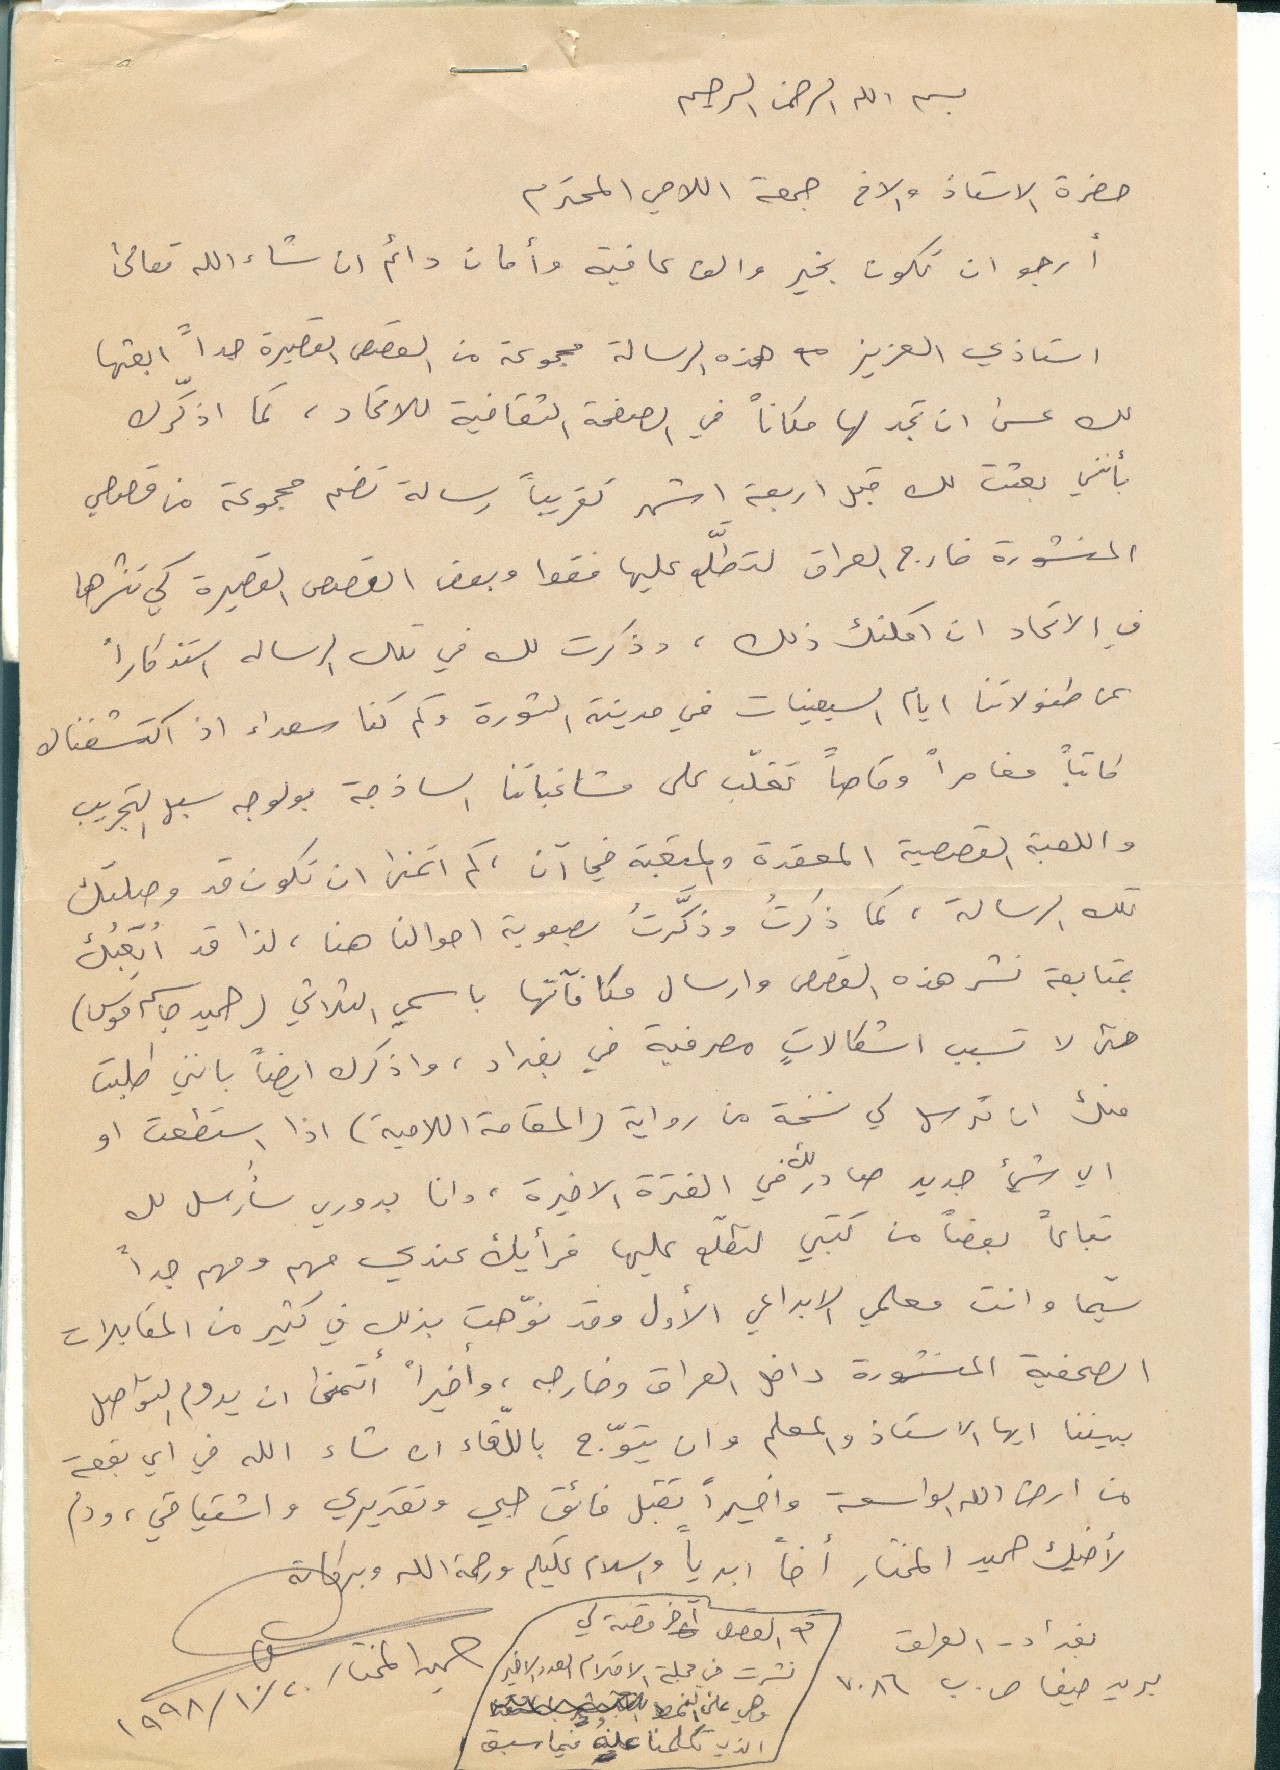 بسم الله الرحمن الرحيم
حضرة الاستاذ والاخ جمعة اللامي المحترم
أرجو ان تكون بخير والف عافية وأمان دائم ان شاء الله تعالى
استاذي العزيز مع هذه الرسالة مجموعة من القصص القصيرة جداً ابعثها
لك عسى ان تجد لها مكاناً في الصفحة الثقافية للاتحاد، كما اذكّرك
بأنني بعثت لك قبل اربعة اشهر تقريباً رسالة تضم مجموعة من قصصي
المنشورة خارج العراق لتطّلع عليها فقط وبعض القصص القصيرة كي تنشرها
في الاتحاد ان امكنك ذلك، وذكرت لك في تلك الرساله استذكاراً
عن طفولاتنا ايام السبعينات في مدينة الثورة وكم كنا سعداء اذ اكتشفناك
كاتباً مغامراً وقاصاً تغلّب على مشاغباتنا الساذجة بولوجه سبل التجريب
واللعبة القصصية المعقدة والمتعبة في آن، كم اتمنى ان تكون قد وصلتك
تلك الرسالة، كما ذكرتُ وذكَّرتُ بصعوبة احوالنا هنا، لذا قد أُتعِبُك
بمتابعة نشر هذه القصص وارسال مكافآتها باسمي الثلاثي (حميد جاسم)
حتى لا تسبب اشكالاتٍ مصرفية في بغداد، واذكرك ايضاً بانني طلبت
منك ان ترسل لي نسخة من رواية (المقامة اللامية) اذا استطعت او
اي شيء جديد صادر لك في الفترة الاخيرة، وانا بدوري سأرسل لك
تباعاً بعضاً من كتبي لتطّلع عليها فرأيك عندي مهم ومهم جداً
سيّما وانت معلمي الابداعي الأول وقد نوّهت بذلك في كثير من المقابلات
الصحفية المنشورة داخل العراق وخارجه، وأخيراً أتمنى ان يدوم التواصل
بيننا ايها الاستاذ والمعلم وان يتوّج باللّقاء ان شاء الله في اي بقعة
من ارض الله الواسعة واخيراً تقبل فائق حبي وتقديري واشتياقي، ودم
لأخيك حميد المختار أخاً ابدياً والسلام عليكم ورحمة الله وبركاته
حميد المختار
١٩٩٨/١٠/٢٠
مع القصص آخر قصة لي
نشرت في مجلة الاقلام العدد الاخير
وهي على النمط
الذي تكلمنا عليه فيما سبق
بغداد - العراق
بريد حيفا ص. ب ٧٠٨٦